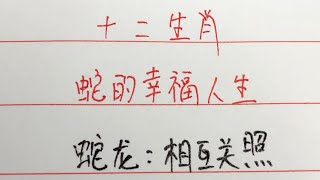 十二生肖
蛇的幸福人生
蛇龙：相互关照